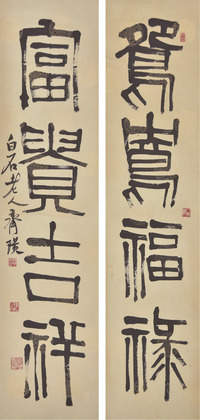 鴛鴦福祿
富貴吉祥
白石老人齊璜